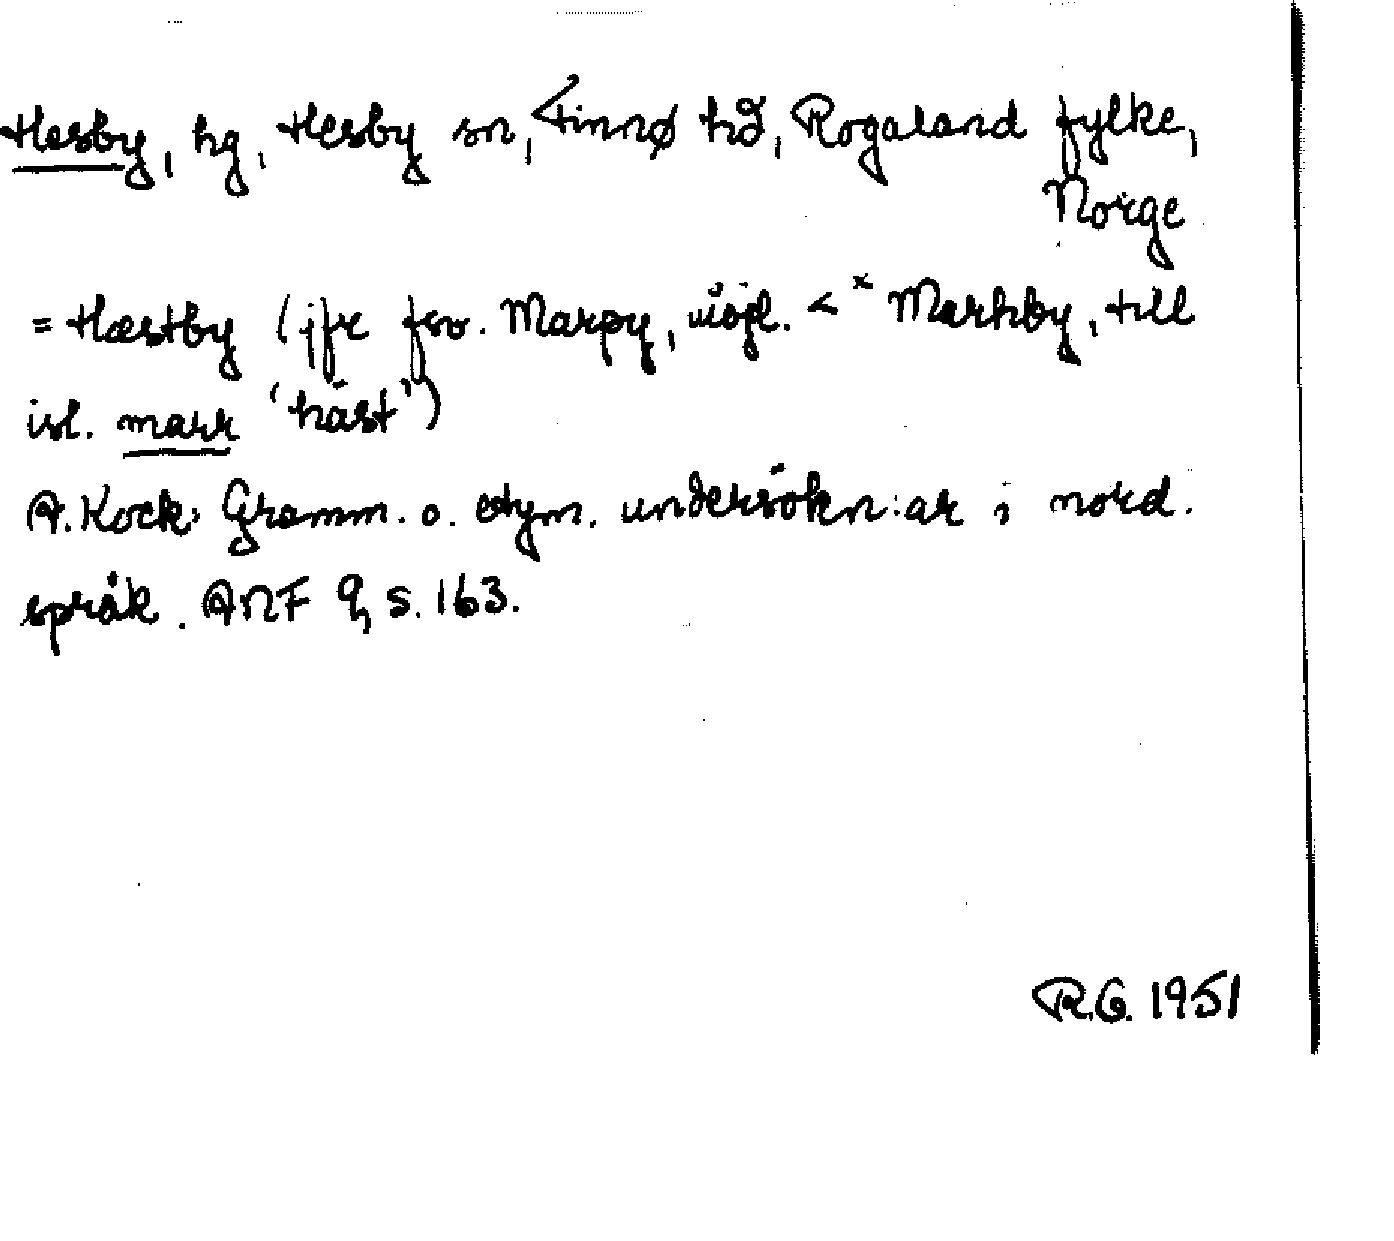 Hesby, hg, Hesby sn, Finnø hd, Rogaland fylke,
Norge
= Hæstby (jfr fsv. Marpy, mögl. < *Marhby, till
isl. marr 'häst')
A. Kock: Gramm. o. etym. undersökn:ar i nord.
språk. ANF 9, s. 163.
R.G. 1951